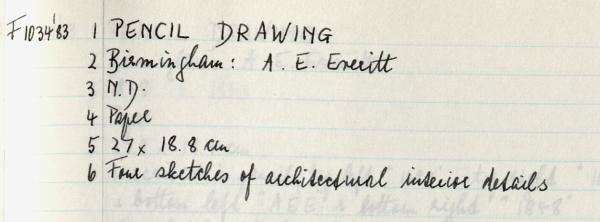 F1034'83 1 PENCIL DRAWING
2 Birmingham: A. E. Everitt
3 N.D.
4 Paper
5 27 x 18.8 cm
6 Four sketches of architectural interior details